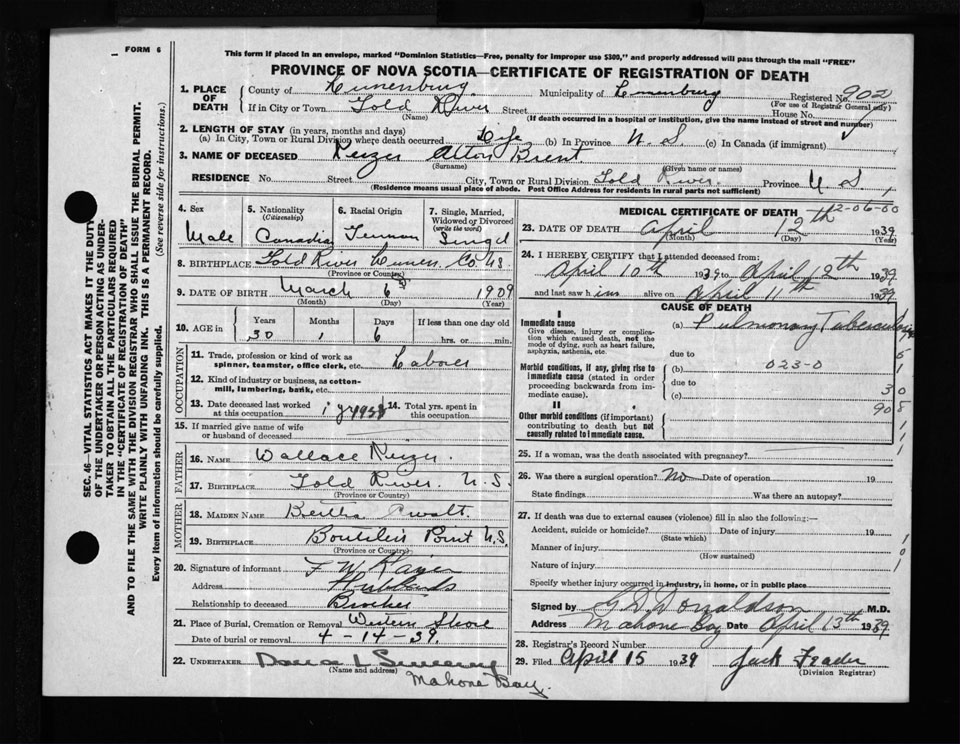 FORM 6
This form if placed in an envelope, marked "Dominion Statistics—Free, penalty for improper use $300," and properly addressed will pass through the mail "FREE"
PROVINCE OF NOVA SCOTIA—CERTIFICATE OF REGISTRATION OF DEATH
1. PLACE OF DEATH County of Lunenburg Municipality of Lunenburg Registered No. 902
(For use of Registrar General only)
If in City or Town Gold River Street House No.
(Name) (If death occurred in a hospital or institution, give the name instead of street and number)
2. LENGTH OF STAY (in years, months and days)
(a) In City, Town or Rural Division where death occurred Life (b) In Province N.S. (c) In Canada (if immigrant)
3. NAME OF DECEASED Keizer Alton Brent
(Surname) (Given name or names)
RESIDENCE No. Street City, Town or Rural Division Gold River Province N S
(Residence means usual place of abode. Post Office Address for residents in rural parts not sufficient)
4. Sex 5. Nationality (Citizenship) 6. Racial Origin 7. Single, Married, Widowed or Divorced (write the word)
Male Canadian German Singel
8. BIRTHPLACE Gold River Lunen. Co NS
(Province or Country)
9. DATE OF BIRTH March 6 1909
(Month) (Day) (Year)
10. AGE in Years Months Days If less than one day old
30 1 6 hrs. or min.
OCCUPATION
11. Trade, profession or kind of work as spinner, teamster, office clerk, etc. Laborer
12. Kind of industry or business, as cotton-mill, lumbering, bank, etc.
13. Date deceased last worked at this occupation
14. Total yrs. spent in this occupation
15. If married give name of wife or husband of deceased
FATHER
16. NAME Wallace Keizer
17. BIRTHPLACE Gold River N.S.
(Province or Country)
MOTHER
18. MAIDEN NAME Bertha
19. BIRTHPLACE Boutilier's Point N.S.
(Province or Country)
20. Signature of informant F W
Address Hubbards
Relationship to deceased Brother
21. Place of Burial, Cremation or Removal Western Shore
Date of burial or removal 4-14-39.
22. UNDERTAKER Dana L Sweeny
(Name and address)
Mahone Bay.
MEDICAL CERTIFICATE OF DEATH 2-06-50
23. DATE OF DEATH April 12th 1939
(Month) (Day) (Year)
24. I HEREBY CERTIFY that I attended deceased from:
April 10th 1939 to April 12th 1939
and last saw him alive on April 11th 1939
CAUSE OF DEATH
I
Immediate cause
Give disease, injury or complication which caused death, not the mode of dying, such as heart failure, asphyxia, asthenia, etc.
(a) Pulmonary Tuberculosis
due to
Morbid conditions, if any, giving rise to immediate cause (stated in order proceeding backwards from immediate cause).
(b) 023-0
due to
(c) 30
II
908
Other morbid conditions (if important) contributing to death but not causally related to immediate cause.
25. If a woman, was the death associated with pregnancy?
26. Was there a surgical operation? No Date of operation 19
State findings Was there an autopsy?
27. If death was due to external causes (violence) fill in also the following:—
Accident, suicide or homicide? Date of injury 19
(State which)
Manner of injury
(How sustained)
Nature of injury
Specify whether injury occurred in industry, in home, or in public place
Signed by G D Donaldson M.D.
Address Mahone Bay Date April 13th 1939
28. Registrar's Record Number
29. Filed April 15 1939 Jack Frader
(Division Registrar)
SEC. 46—VITAL STATISTICS ACT MAKES IT THE DUTY
OF THE UNDERTAKER OR PERSON ACTING AS UNDER-
TAKER TO OBTAIN ALL THE PARTICULARS REQUIRED
IN THE "CERTIFICATE OF REGISTRATION OF DEATH"
AND TO FILE THE SAME WITH THE DIVISION REGISTRAR WHO SHALL ISSUE THE BURIAL PERMIT.
WRITE PLAINLY WITH UNFADING INK. THIS IS A PERMANENT RECORD.
Every item of Information should be carefully supplied. (See reverse side for instructions.)